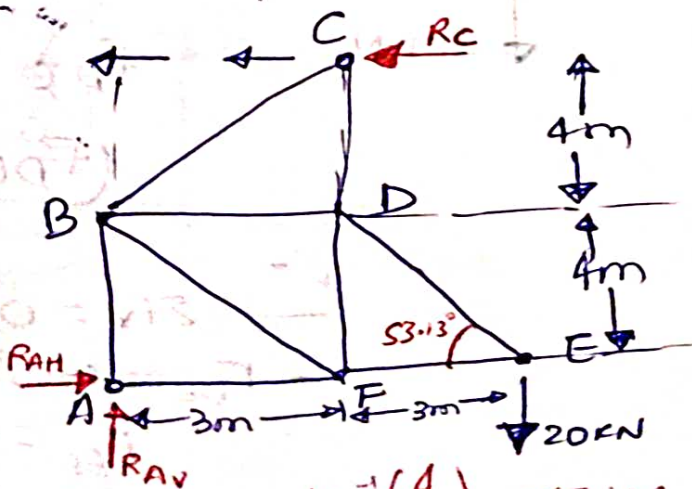 C
Rc
4m
B
D
4m
53.13°
E
RAH
A
F
3m
3m
20KN
RAV